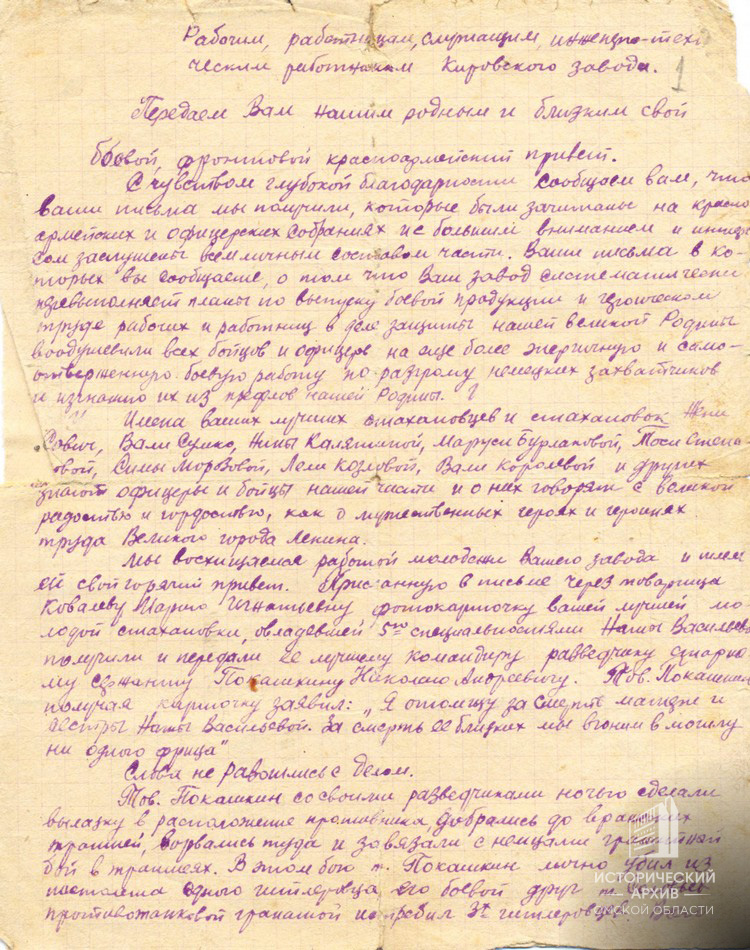 Рабочим, работницам, служащим, инженерно-техни
ческим работникам Кировского завода.
1
Передаем Вам нашим родным и близким свой
боевой, фронтовой красноармейский привет.
С чувством глубокой благодарности сообщаем вам, что
ваши письма мы получили, которые были зачитаны на красно
армейских и офицерских собраниях и с большим вниманием и интере
сом заслушаны всем личным составом части. Ваши письма в ко-
торых вы сообщаете, о том что Ваш завод систематически
перевыполняет планы по выпуску боевой продукции и героическом
труде рабочих и работниц в деле защиты нашей великой Родины
воодушевили всех бойцов и офицеров на еще более энергичную и само-
отверженную боевую работу по разгрому немецких захватчиков
и изгнанию их из пределов нашей Родины.
Имена ваших лучших стахановцев и стахановок Жени
Савич, Вали Сумко, Нины Калятиной, Маруси Бурлаковой, Тоси Степа-
новой, Симы Морозовой, Лели Козловой, Вали Королевой и других
знают офицеры и бойцы нашей части и о них говорят с великой
радостью и гордостью, как о мужественных героях и героинях
труда Великого города Ленина.
Мы восхищаемся работой молодежи Вашего завода и шлем
ей свой горячий привет. Присланную в письме через товарища
Ковалеву Марию Игнатьевну фотокарточку вашей лучшей мо
лодой стахановки, овладевшей 5ю специальностями Нины Васильевой
получили и передали ее лучшему командиру разведчику старше
му сержанту Покашкину Николаю Андреевичу. Тов. Покашкин
получая карточку заявил: „Я отомщу за смерть матери и
сестры Нины Васильевой. За смерть ее близких мы вгоним в могилу
ни одного фрица"
Слова не разошлись с делом.
Тов. Покашкин со своими разведчиками ночью сделали
вылазку в расположение противника, добрались до вражеских
траншей, ворвались туда и завязали с немцами гранатный
бой в траншеях. В этом бою т. Покашкин лично убил из
пистолета одного гитлеровца его боевой друг т.
противотанковой гранатой истребил 3х гитлеровцев.
ИСТОРИЧЕСКИЙ
АРХИВ
ОМСКОЙ ОБЛАСТИ